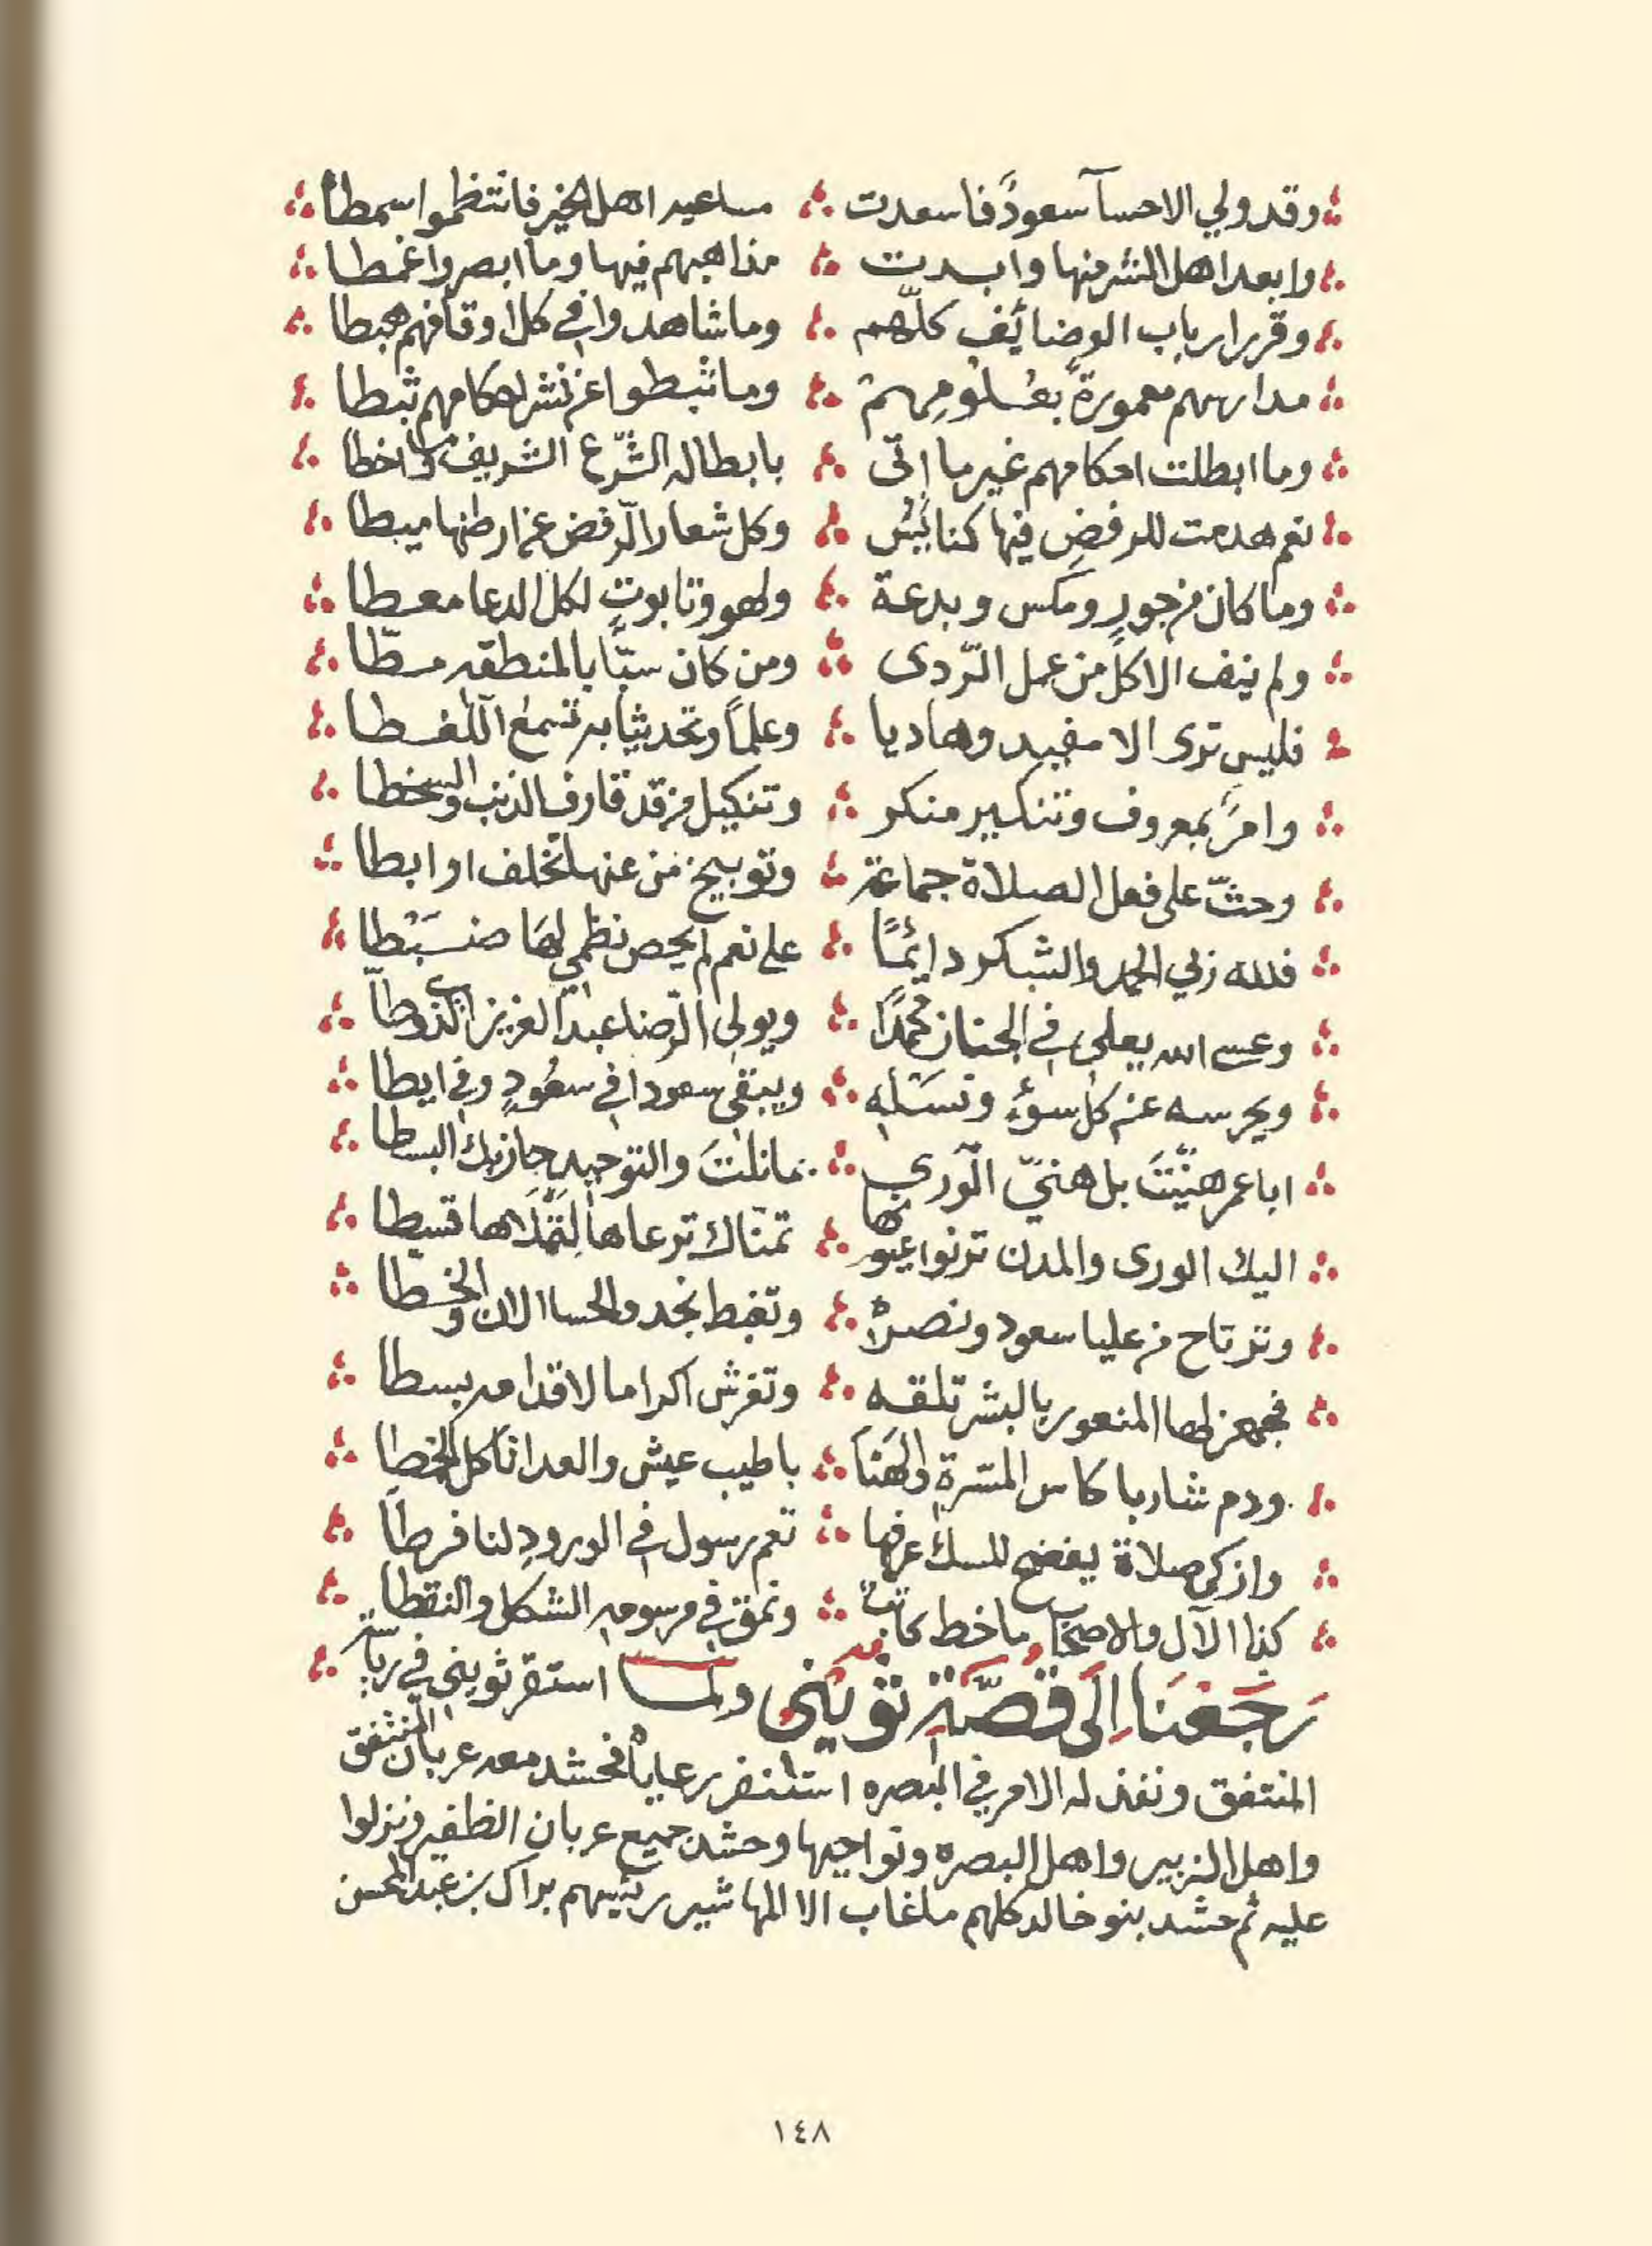 وقد ولي الاحسآ سعودً فاسعدت ∴ مساعيه اهل الخير فانتظموا سمطا
وابعد اهل الشر منها وابدت ∴ مذاهبهم فيها وما ابصروا غمطا
وقرر ارباب الوضائف كلّهم ∴ وما شاهدوا في كل اوقافهم هبطا
مدارسهم معمورةً بعُلُومِهِمْ ∴ وما ثبطوا عن نشر احكامهم ثبطا
وما ابطلت احكامهم غير ما اتى ∴ بابطاله الشّرع الشريف وما اخطا
نعم هدمت للرفضِ فيها كنائسٌ ∴ وكل شعار الرّفض عن ارضها ميطا
وما كان من جورٍ ومكس وبدعة ∴ ولهو وتابوتٍ لكل الدعا معطا
ولم ينف الا كلَّ من عمل الرّدى ∴ ومن كان سبّابا بالمنطقه سطّا
فليس ترى الا مفيد وهاديا ∴ وعلماً وتحديثا به تسمع اللغطا
وامرً بمعروف وتنكير منكر ∴ وتنكيل من قد قارف الذنب والسخطا
وحثّ على فعل الصلاة جماعة ∴ وتوبيخ من عنها تخلف او ابطا
فلله ربي الحمد والشكر دائمًا ∴ على نعم لم يحص نظمي لها ضَبْطا
وعسى الله يعلي في الجنان محمدًا ∴ ويولي الرّضا عبد العزيز الذي وطّا
ويحرسه عن كل سوءٍ ونسله ∴ ويبقى سعودا في سعُودٍ وفي ايطا
ابا عمر هنّيتَ بل هنيّ الورى ∴ بما نلتَ والتوحيد حاز بك البسطا
اليك الورى والمدن ترنوا عيونها ∴ تمنّاك ترعاها لِتملَاها قسطا
وترتاح من عليا سعود ونصره ∴ وتغبط نجد والحسا الان والخطا
فجهز لها المنصور بالبشر تلقه ∴ وتفرش اكراما لاقدامه بسطا
ودم شاربا كاس المسّرةِ والهَنَا ∴ باطيب عيش والعدا تاكل الخمطا
وازكى صلاة يفضح المسك عرفها ∴ تعم رسول في الورودِ لنا فرطا
كذا الآل والاصحاب ما خط كاتب ∴ ونمق في مرسومه الشكل والنقطا
رَجَعنَا اِلَى قصَّةِ ثوَيْنى ولمّا استقر ثويني في رياسة
المنتفق ونفذ له الامر في البصره استنفر رعاياه فحشد معه عربان المنتفق
واهل الزبير واهل البصره ونواحيها وحشد جميع عربان الظفير ونزلوا
عليه ثم حشد بنو خالد كلهم ما غاب الا المهاشير رئيسهم براك بن عبد المحسن
١٤٨